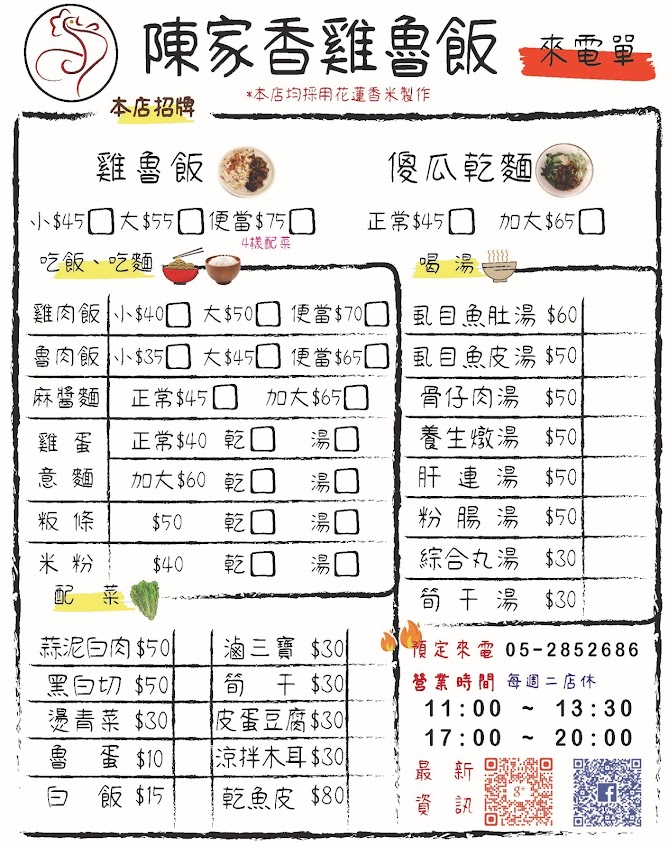 陳家香雞魯飯 來電單
*本店均採用花蓮香米製作
本店招牌
雞魯飯
小$45 大$55 便當$75
4樣配菜
傻瓜乾麵
正常$45 加大$65
吃飯、吃麵
雞肉飯 小$40 大$50 便當$70
魯肉飯 小$35 大$45 便當$65
麻醬麵 正常$45 加大$65
雞蛋 正常$40 乾 湯
意麵 加大$60 乾 湯
粄條 $50 乾 湯
米粉 $40 乾 湯
喝湯
虱目魚肚湯 $60
虱目魚皮湯 $50
骨仔肉湯 $50
養生燉湯 $50
肝連湯 $50
粉腸湯 $50
綜合丸湯 $30
筍干湯 $30
配菜
蒜泥白肉 $50 滷三寶 $30
黑白切 $50 筍干 $30
燙青菜 $30 皮蛋豆腐 $30
魯蛋 $10 涼拌木耳 $30
白飯 $15 乾魚皮 $80
預定來電 05-2852686
營業時間 每週二店休
11:00 ~ 13:30
17:00 ~ 20:00
最新
資訊